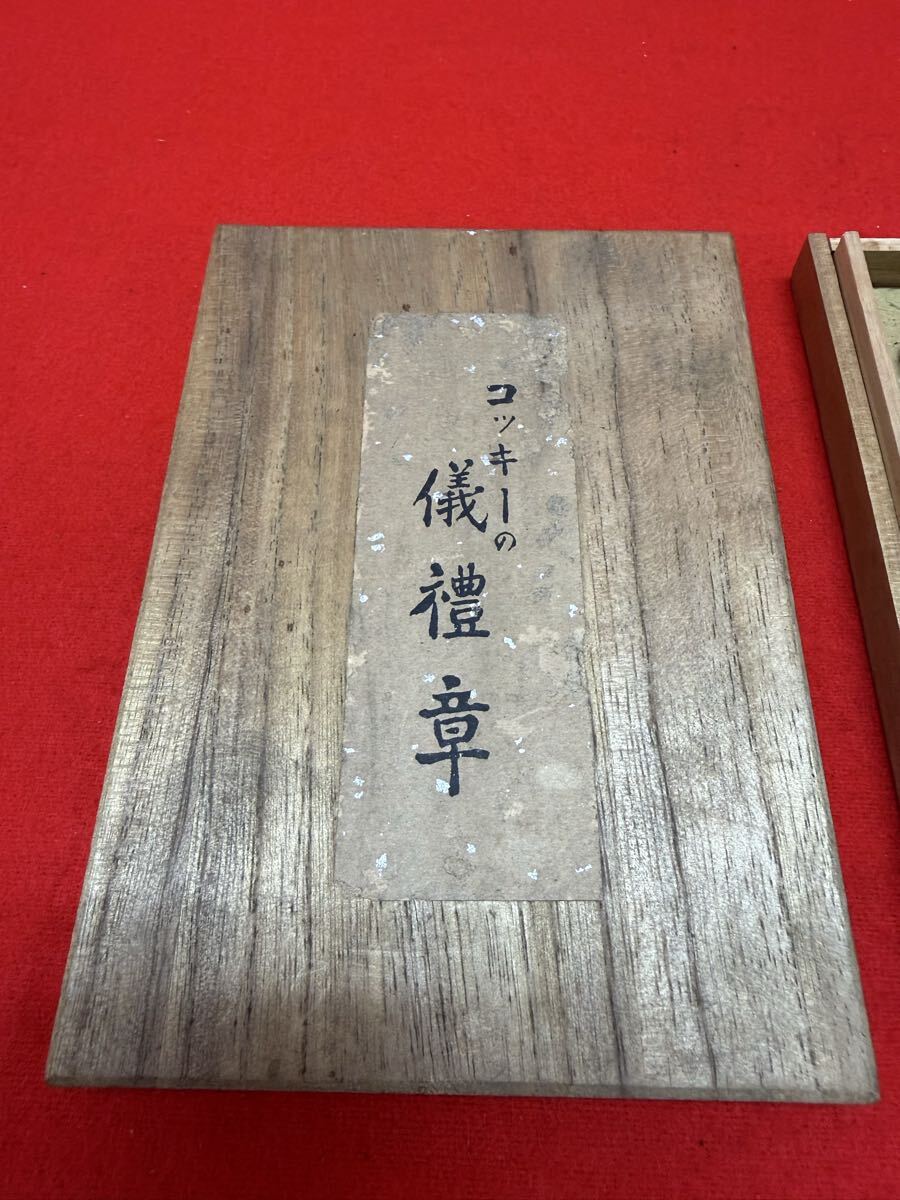 コッキーの
儀禮章